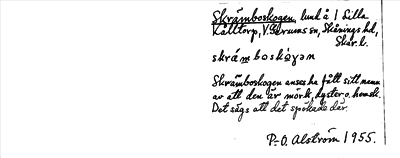 Skråmboskogen, lund å 1 Lilla
Kålltorp, V. Gerums sn, Skånings hd,
Skar. l.
skråmboskó̀gən
Skråmboskogen anses ha fått sitt namn
av att den är mörk, dyster o. hemsk.
Det sägs att det spökade där.
P.-O. Alström 1955.